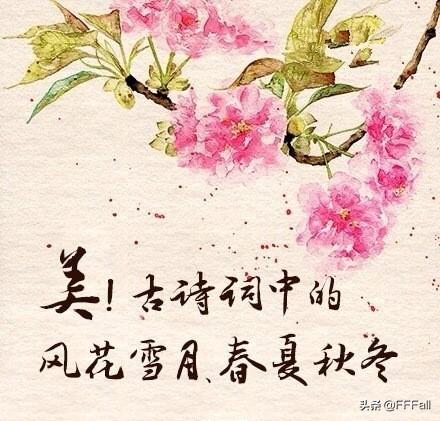 美!古诗词中的
风花雪月、春夏秋冬
头条 @FFFall